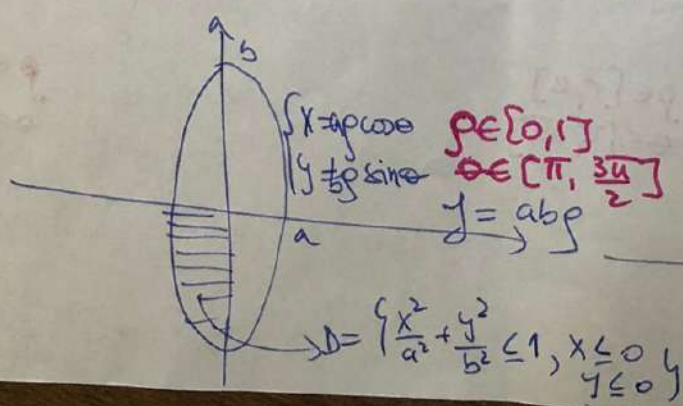 b
{ x = aρ cosθ ρ ∈ [0, 1]
{ y = bρ sinθ θ ∈ [π, 3π/2]
a J = abρ
D = { x²/a² + y²/b² ≤ 1, x ≤ 0
y ≤ 0 }